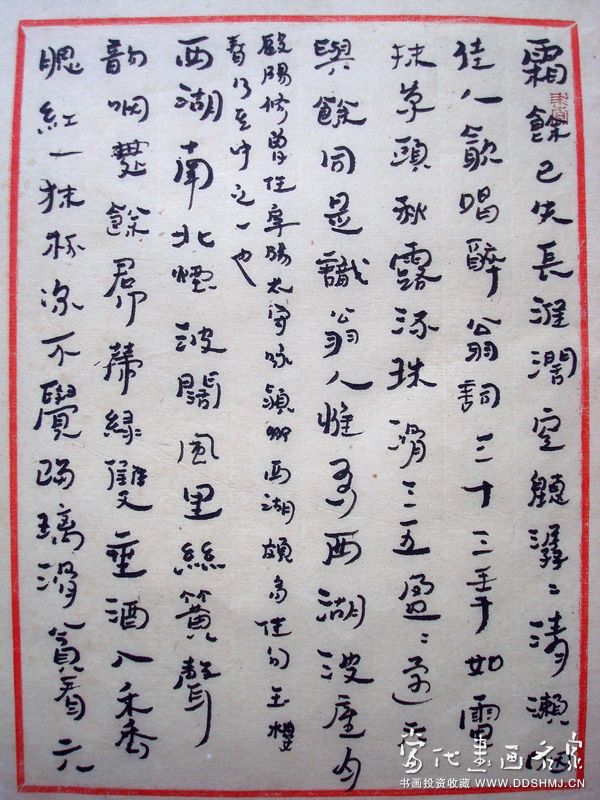 霜餘已失長淮闊空聽潺〻清潁咽
佳人歌唱醉翁詞三十三年如電
抹草頭秋露流珠滑三五盈〻還二
與餘同是識翁人惟有西湖波底月
歐陽修曾任阜陽太守咏潁州西湖頗多佳句玉樓
春乃其中之一也
西湖南北煙波闊風里絲簧聲
韻咽舞餘裙帶綠雙垂酒入香
腮紅一抹杯深不覺琉璃滑貪看六
當代書画名家
书画投资收藏 WWW.DDSHMJ.CN